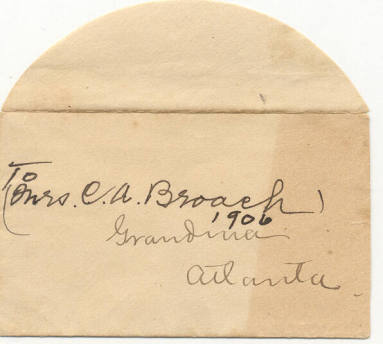 To
(Mrs. C. A. Broach)
1906
Grandma
Atlanta.